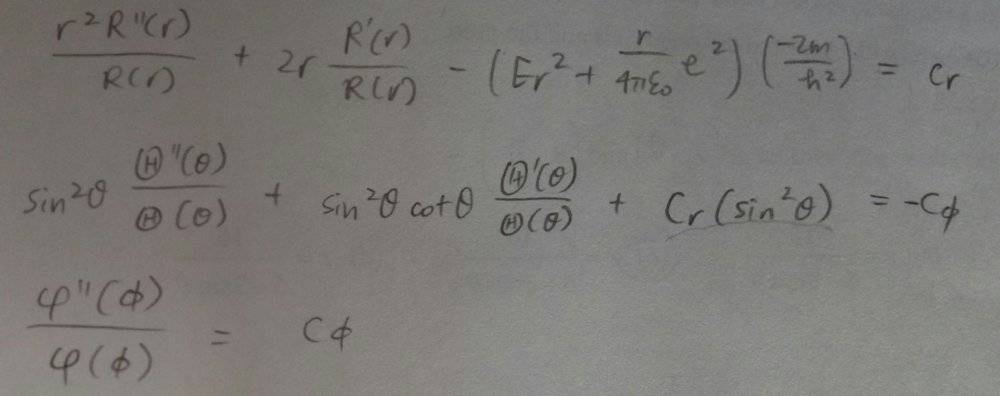 r²R''(r)/R(r) + 2r R'(r)/R(r) - (Er² + r/4πε₀ e²)(-2m/ħ²) = Cr
sin²θ Θ''(θ)/Θ(θ) + sin²θ cotθ Θ'(θ)/Θ(θ) + Cr(sin²θ) = -Cϕ
φ''(ϕ)/φ(ϕ) = Cϕ